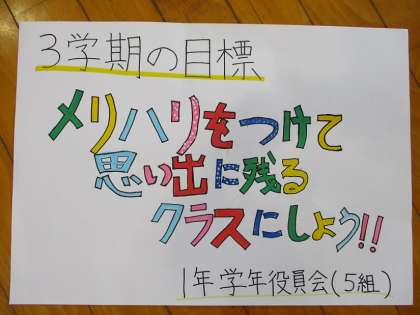 3学期の目標
メリハリをつけて
思い出に残る
クラスにしよう!!
1年学年役員会(5組)